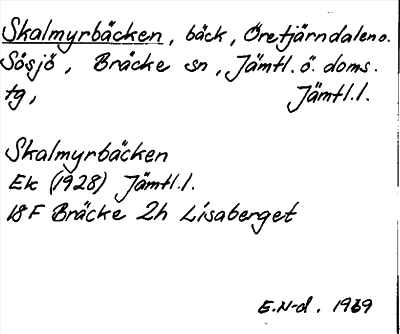 Skalmyrbäcken, bäck, Öretjärndalen o.
Sösjö, Bräcke sn, Jämtl. ö. doms.
tg, Jämtl. l.
Skalmyrbäcken
Ek (1928) Jämtl. l.
18F Bräcke 2h Lisaberget
E.N-d. 1969